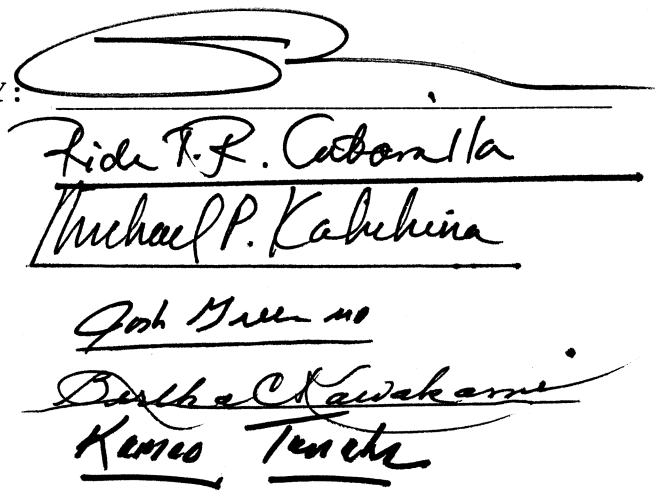 Y:
Rida T.R. Cabanilla
Michael P. Kahikina
Josh Green MD
Bertha C Kawakami
Kameo Tanaka